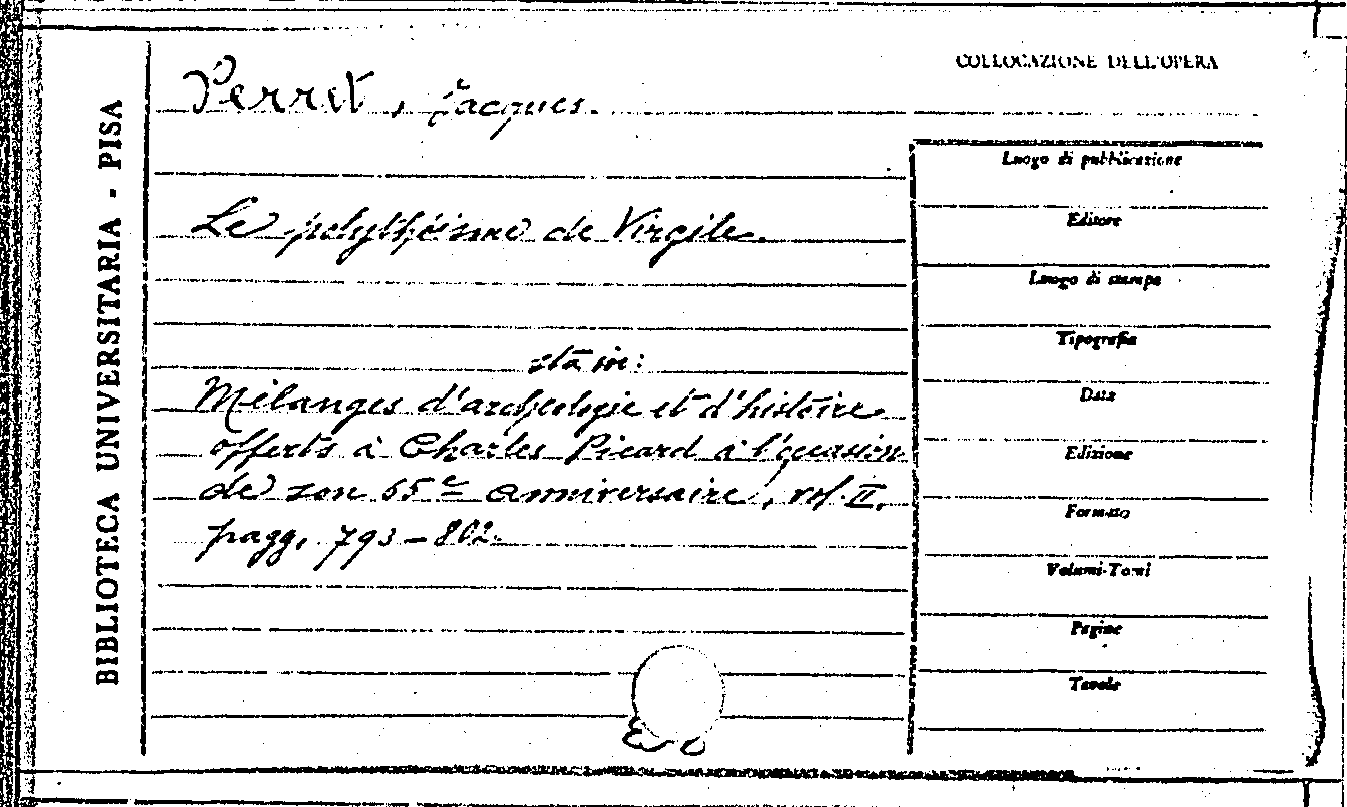 BIBLIOTECA UNIVERSITARIA - PISA
COLLOCAZIONE DELL'OPERA
Perret, Jacques.
Le polythéisme de Virgile.
sta in:
Mélanges d'archéologie et d'histoire
offerts à Charles Picard à l'occasion
de son 65e anniversaire, vol. II,
pagg. 793-802.
Luogo di pubblicazione
Editore
Luogo di stampa
Tipografia
Data
Edizione
Formato
Volumi-Tomi
Pagine
Tavole